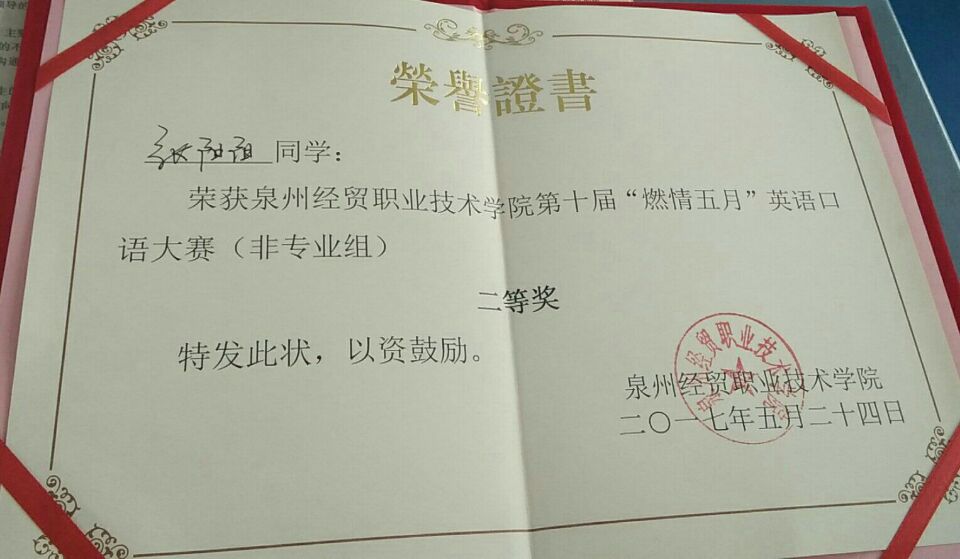 榮譽證書
张阳阳同学：
荣获泉州经贸职业技术学院第十届“燃情五月”英语口
语大赛（非专业组）
二等奖
特发此状，以资鼓励。
泉州经贸职业技术学院
泉州经贸职业技术学院
二〇一七年五月二十四日